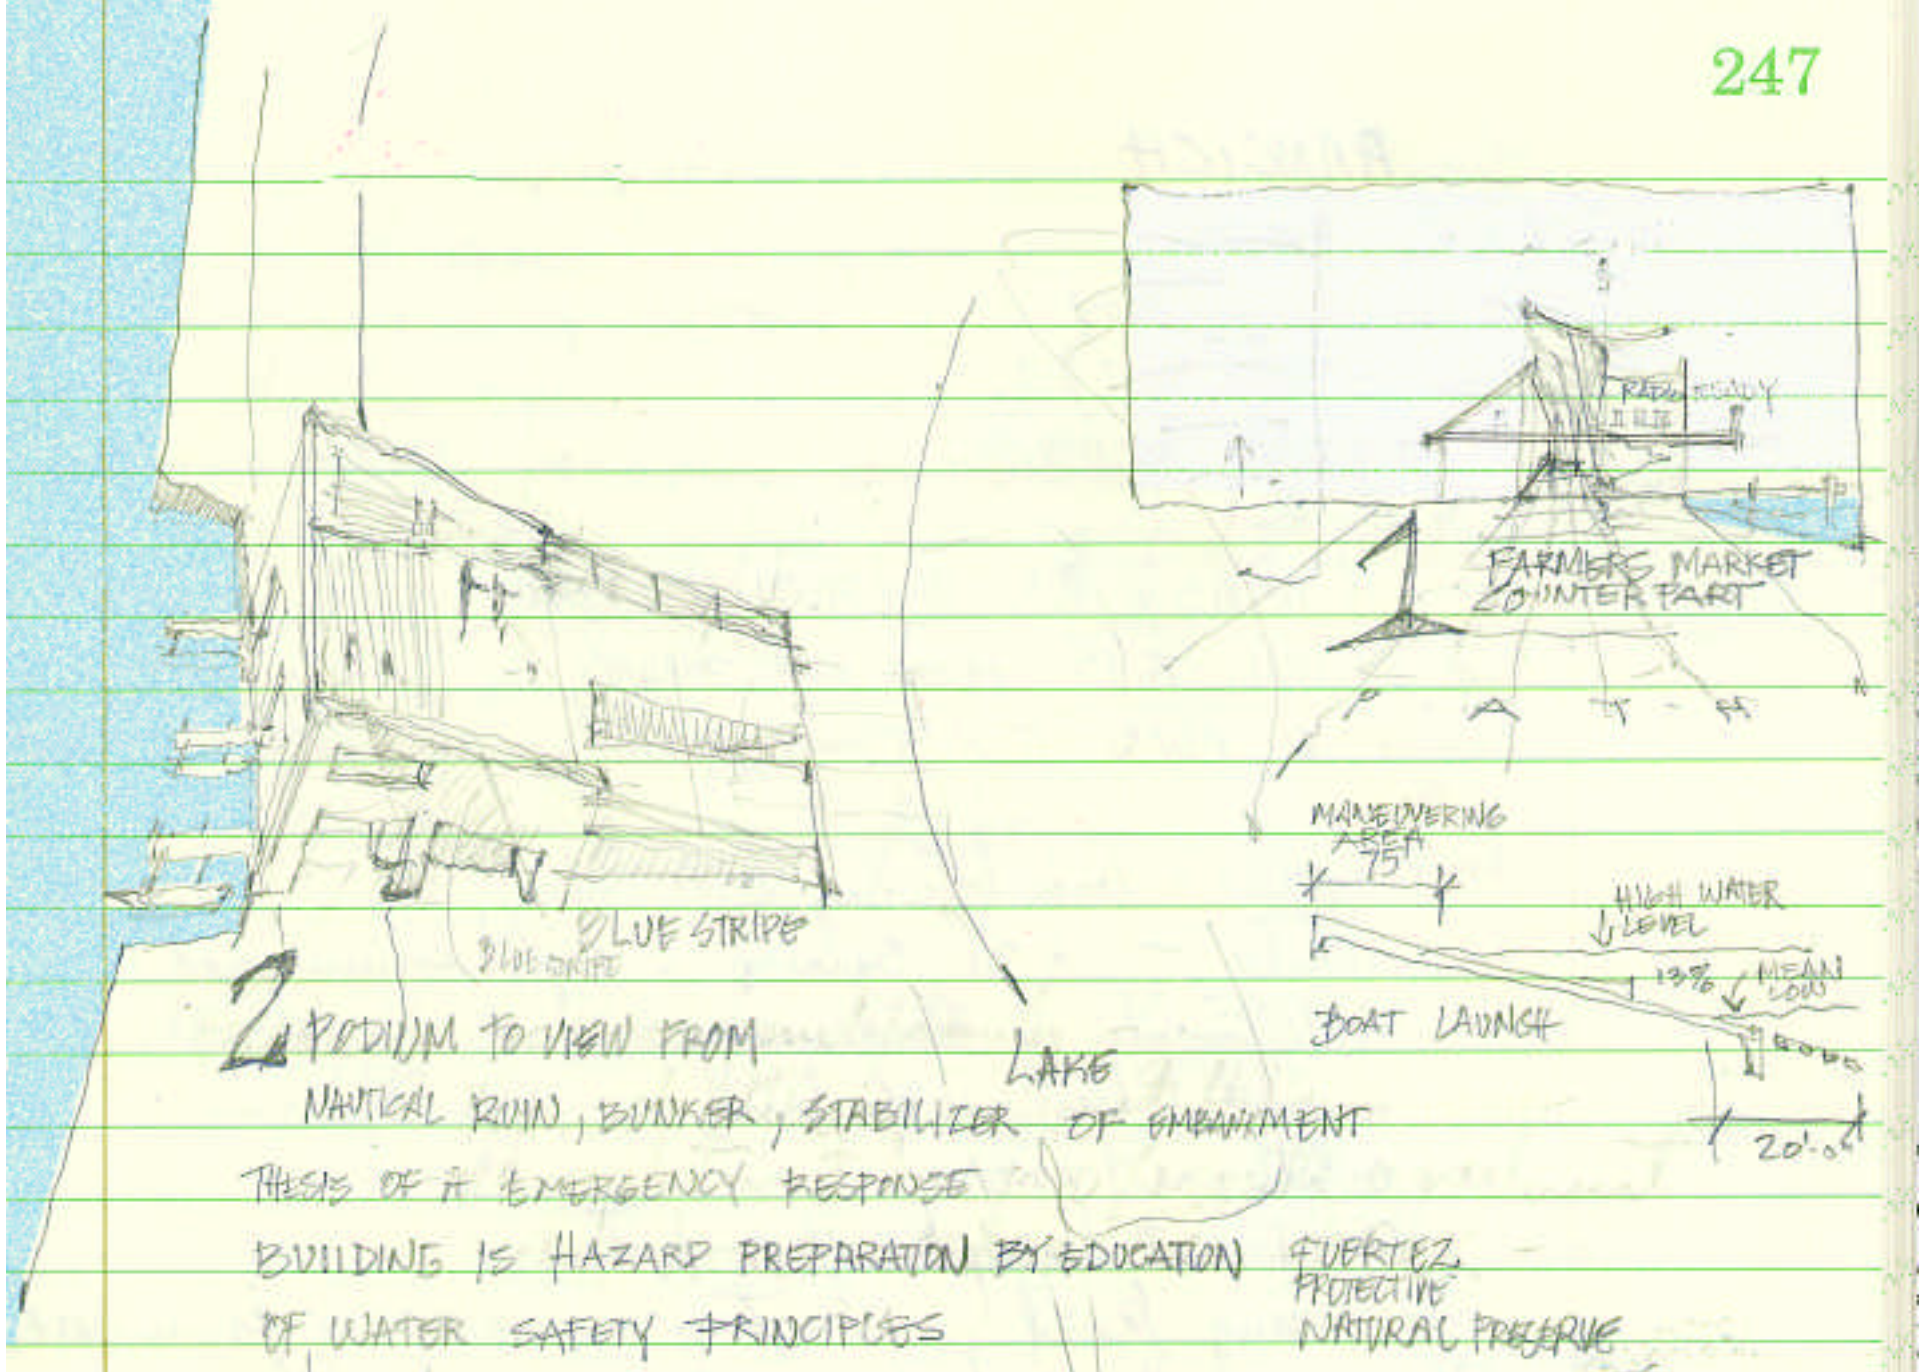 247
READY
1 FARMERS MARKET
COUNTER PART
P A T H
MANEUVERING
AREA
75'
HIGH WATER
LEVEL
13%
MEAN
LOW
BOAT LAUNCH
20'-0"
BLUE STRIPE
BLUE STRIPE
2 PODIUM TO VIEW FROM
LAKE
NAUTICAL RUIN, BUNKER, STABILIZER OF EMBANKMENT
THESIS OF A EMERGENCY RESPONSE
BUILDING IS HAZARD PREPARATION BY EDUCATION
OF WATER SAFETY PRINCIPLES
FUERTEZ
PROTECTIVE
NATURAL PRESERVE